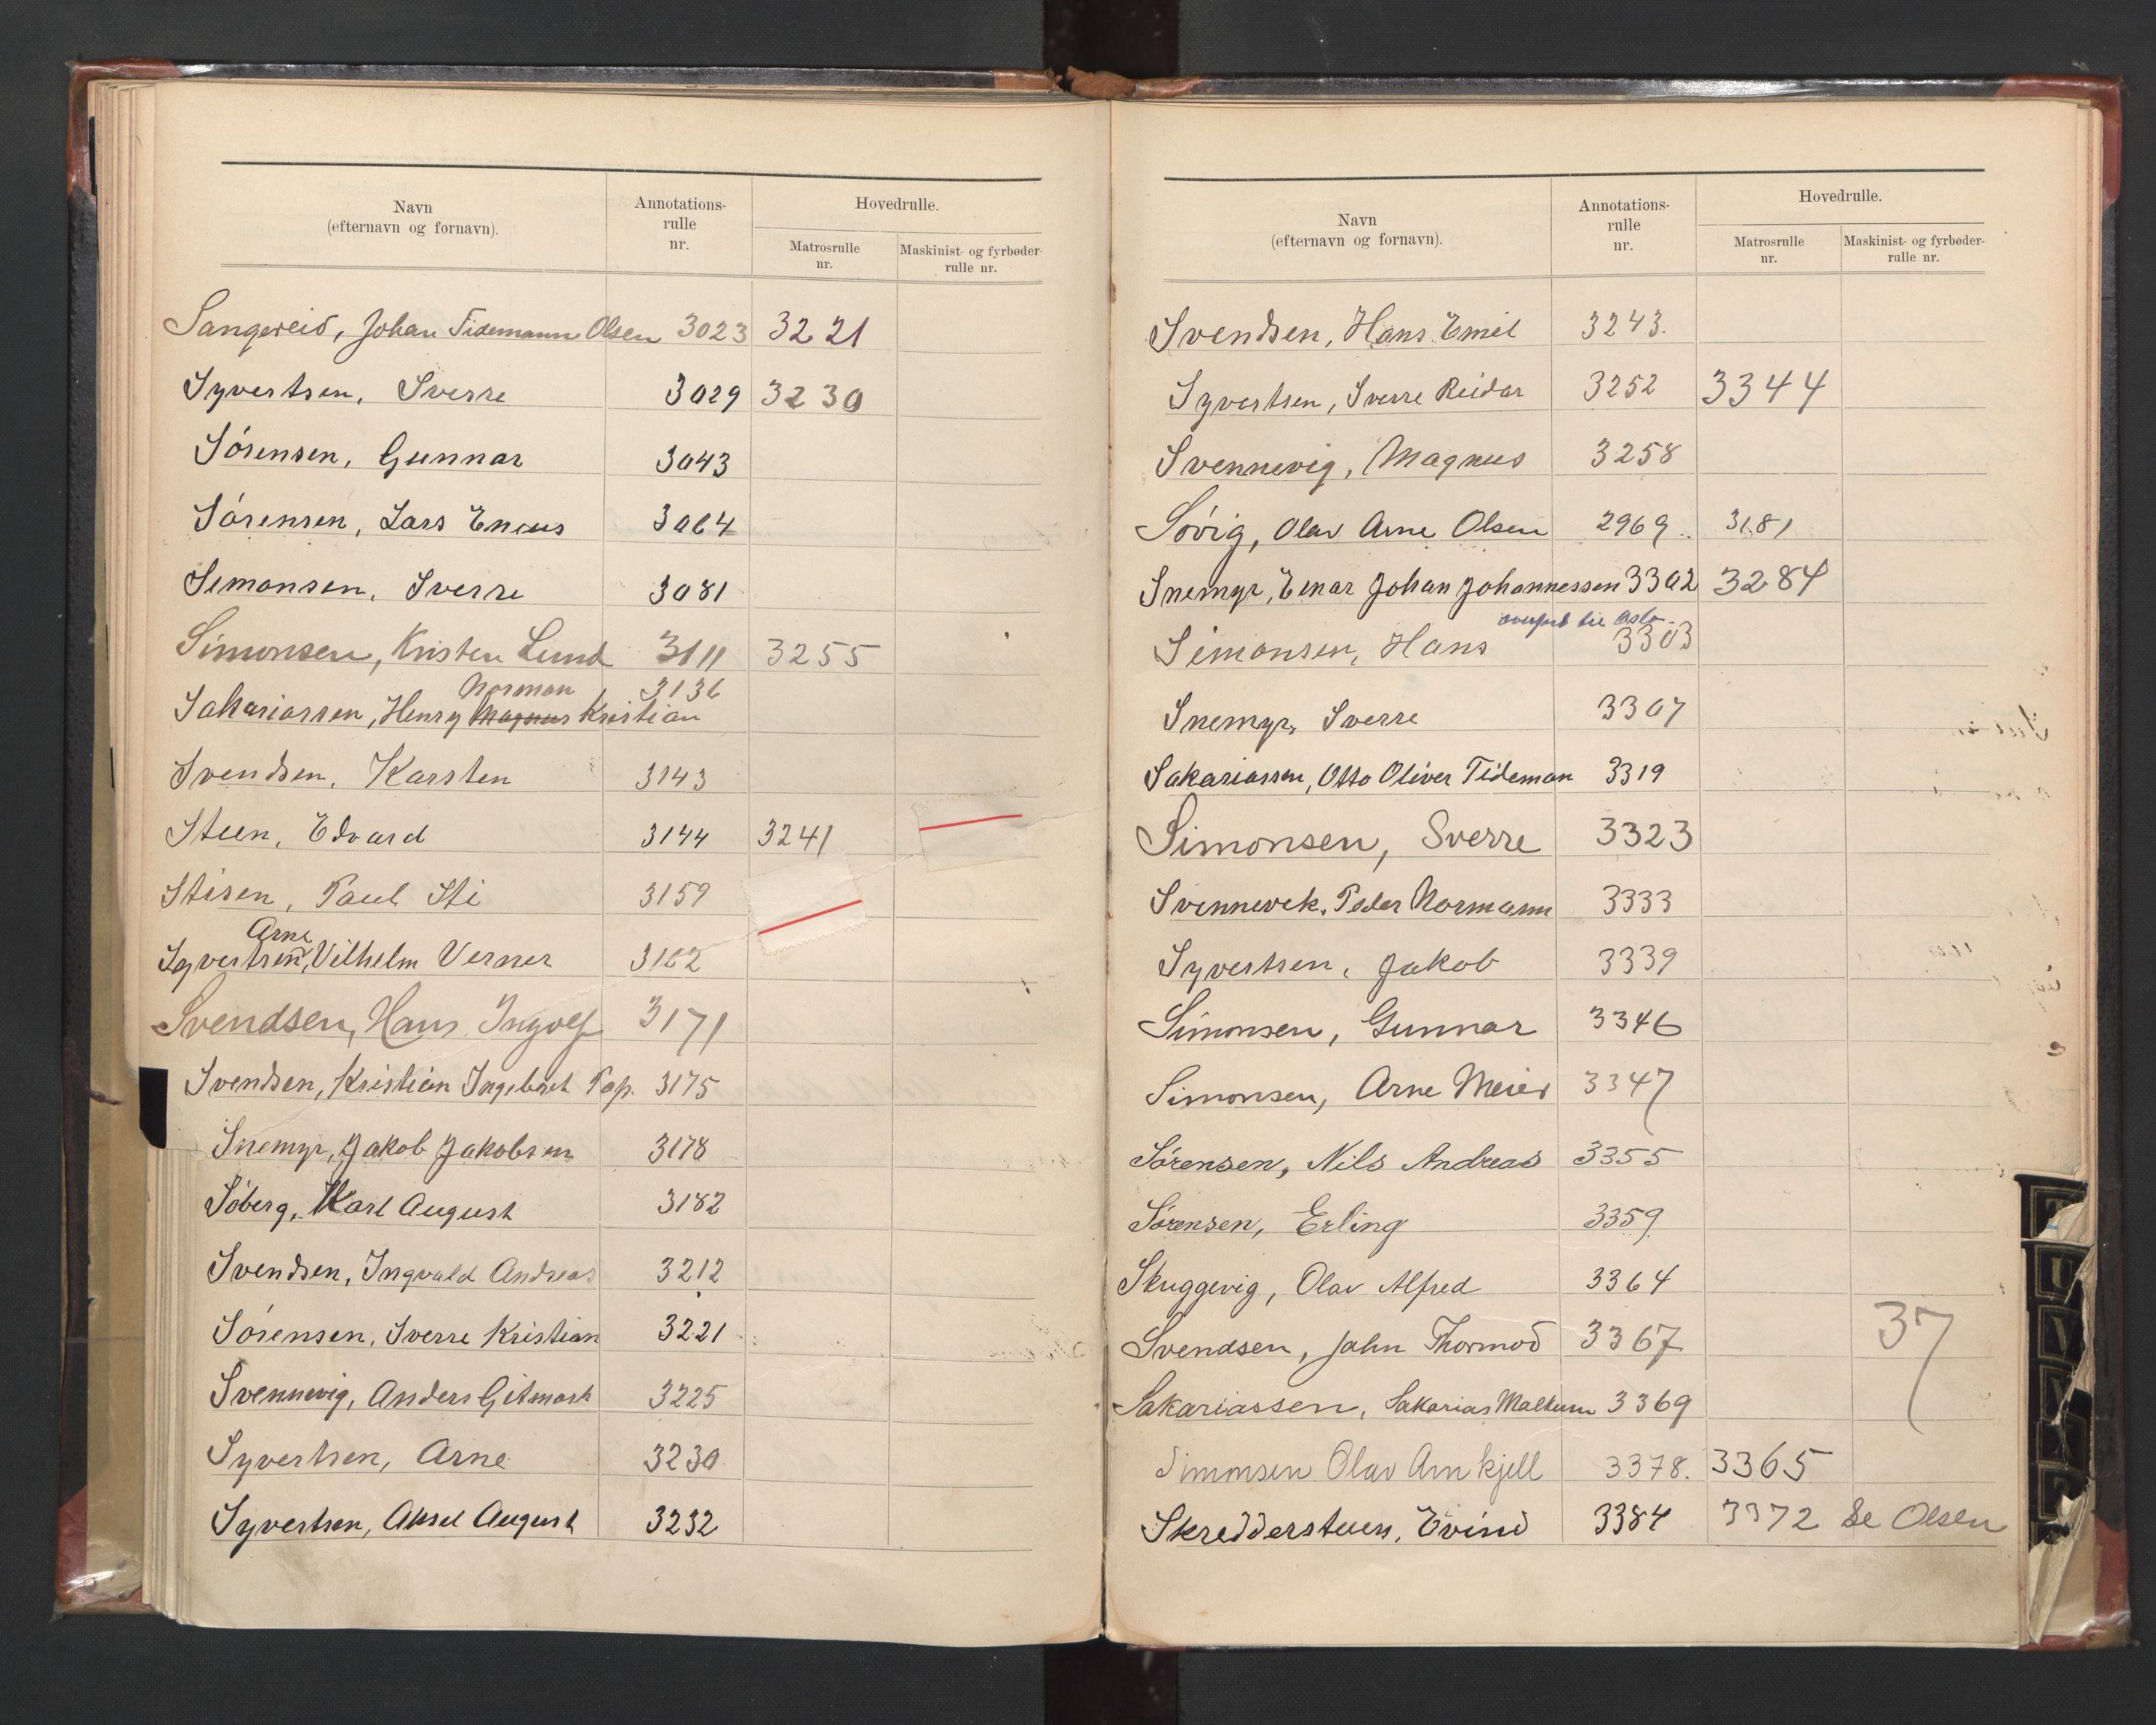 Navn
(efternavn og fornavn).
Annotations-
rulle
nr.
Hovedrulle.
Matrosrulle
nr.
Maskinist- og fyrbøder-
rulle nr.
Sangereid, Johan Tidemann Olsen 3023 3221
Syvertsen, Sverre 3029 3230
Sørensen, Gunnar 3043
Sørensen, Lars Eneus 3064
Simonsen, Sverre 3081
Simonsen, Kristen Lund 3111 3255
Norman 3136
Sakariassen, Henry Magnus Kristian
Svendsen, Karsten 3143
Steen, Edvard 3144 3241
Stisen, Paul Sti 3159
Arne
Syvertsen, Vilhelm Verner 3162
Svendsen, Hans Ingolf 3171
Svendsen, Kristian Ingebret Tap. 3175
Snemyr, Jakob Jakobsen 3178
Søberg, Karl August 3182
Svendsen, Ingvald Andreas 3212
Sørensen, Sverre Kristian 3221
Svennevig, Anders Gitmark 3225
Syvertsen, Arne 3230
Syvertsen, Aksel August 3232
Navn
(efternavn og fornavn).
Annotations-
rulle
nr.
Hovedrulle.
Matrosrulle
nr.
Maskinist- og fyrbøder-
rulle nr.
Svendsen, Hans Emil 3243.
Syvertsen, Sverre Reidar 3252 3344
Svennevig, Magnus 3258
Søvig, Olav Arne Olsen 2969 3181
Snemyr, Einar Johan Johannessen 3302 3284
overført til Oslo.
Simonsen, Hans 3303
Snemyr, Sverre 3307
Sakariassen, Otto Oliver Tideman 3319
Simonsen, Sverre 3323
Svennevik, Peder Normann 3333
Syvertsen, Jakob 3339
Simonsen, Gunnar 3346
Simonsen, Arne Meier 3347
Sørensen, Nils Andreas 3355
Sørensen, Erling 3359
Skuggevig, Olav Alfred 3364
37
Svendsen, John Thormod 3367
Sakariassen, Sakarias Maltum 3369
Simonsen Olav Arn kjell 3378. 3365
Skreddersteen, Evind 3384 3372 Se Olsen